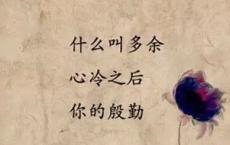 什么叫多余
心冷之后
你的殷勤